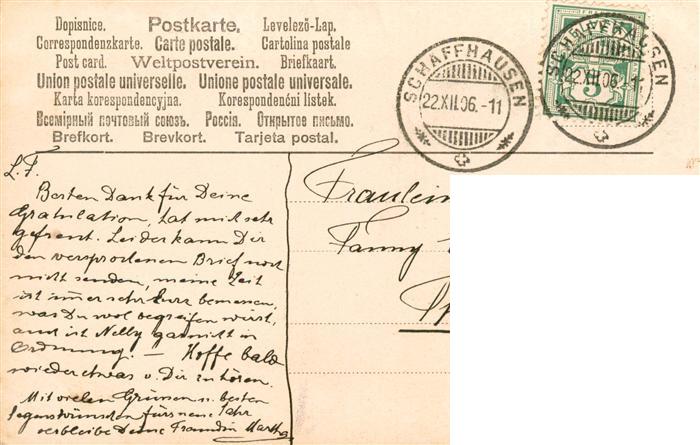 Dopisnice. Postkarte. Levelező-Lap.
Correspondenzkarte. Carte postale. Cartolina postale
Post card. Weltpostverein. Briefkaart.
Union postale universelle. Unione postale universale.
Karta korespondencyjna. Korespondenční lístek.
Всемірный почтовый союзъ. Россія. Открытое письмо.
Brefkort. Brevkort. Tarjeta postal.
SCHAFFHAUSEN
22.XII.06.-11
SCHAFFHAUSEN
22.XII.06.-11
5
L. F.
Besten Dank für Deine
Gratulation, hat mich sehr
gefreut. Leider kann Dir
den versprochenen Brief noch
nicht senden, meine Zeit
ist immer sehr kurz bemessen,
was Du wol begreifen wirst,
auch ist Nelly gar nicht in
Ordnung. — Hoffe bald
wieder etwas v. Dir zu hören.
Mit vielen Grüssen u. besten
Segenswünschen fürs neue Jahr
verbleibe Deine Freundin Martha
Fräulein
Fanny